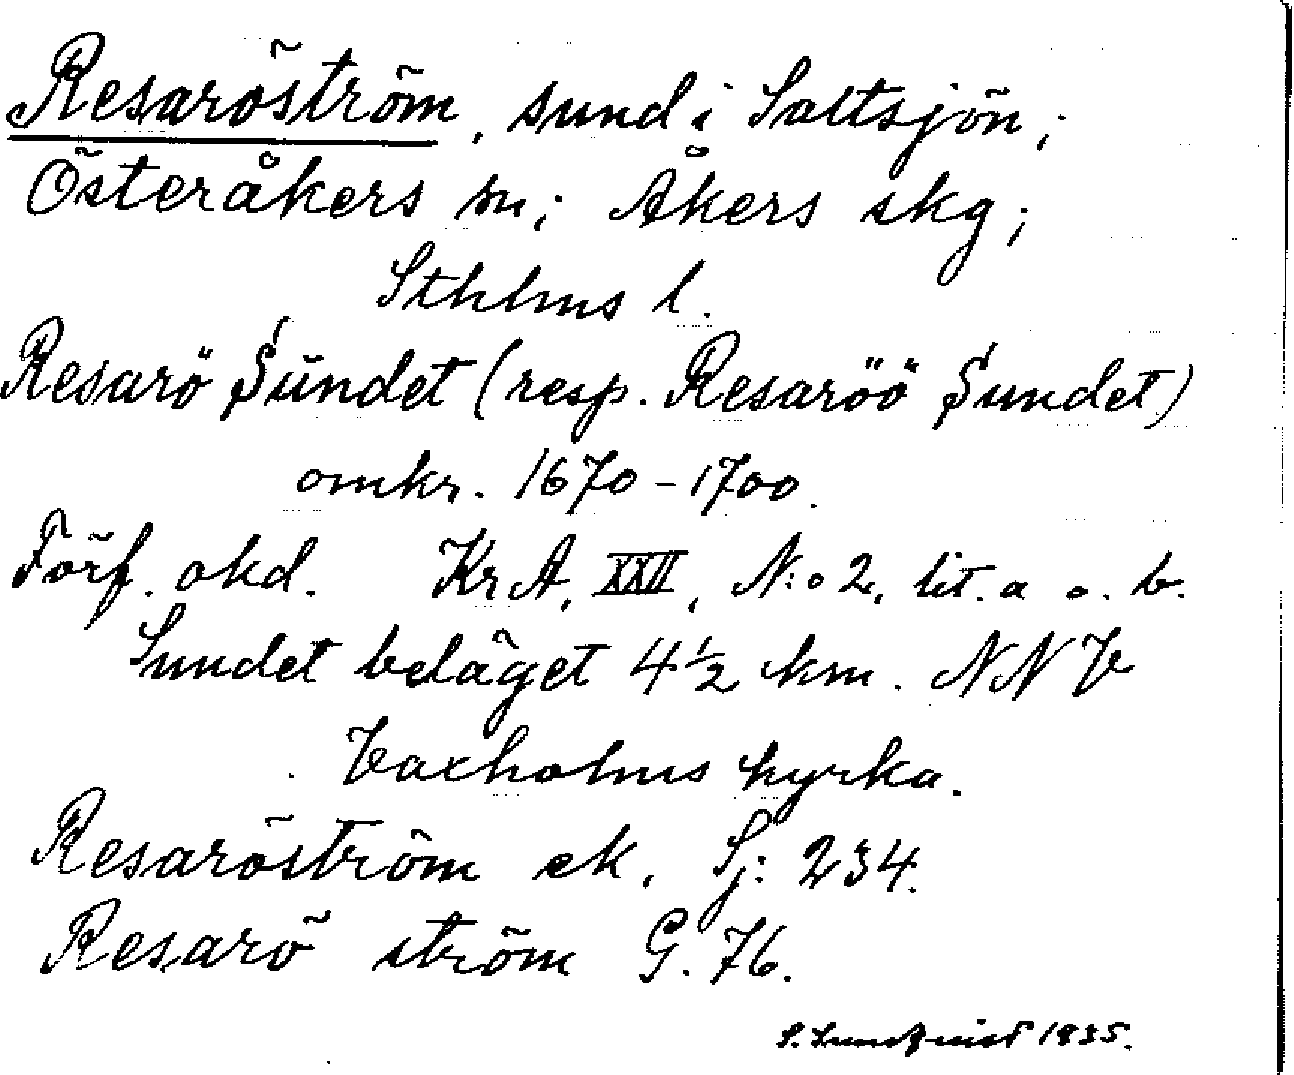 Resaröström, sund i Saltsjön;
Österåkers sn; Åkers skg;
Sthlms l.
Resarö Sundet (resp. Resaröö Sundet)
omkr. 1670-1700.
Förf. okd. KrA, XXII, N:o 2, lit. a o. b.
Sundet beläget 4½ km. NNV
Vaxholms kyrka.
Resaröström ek. Sj: 234.
Resarö ström G. 76.
S. Lundqvist 1935.